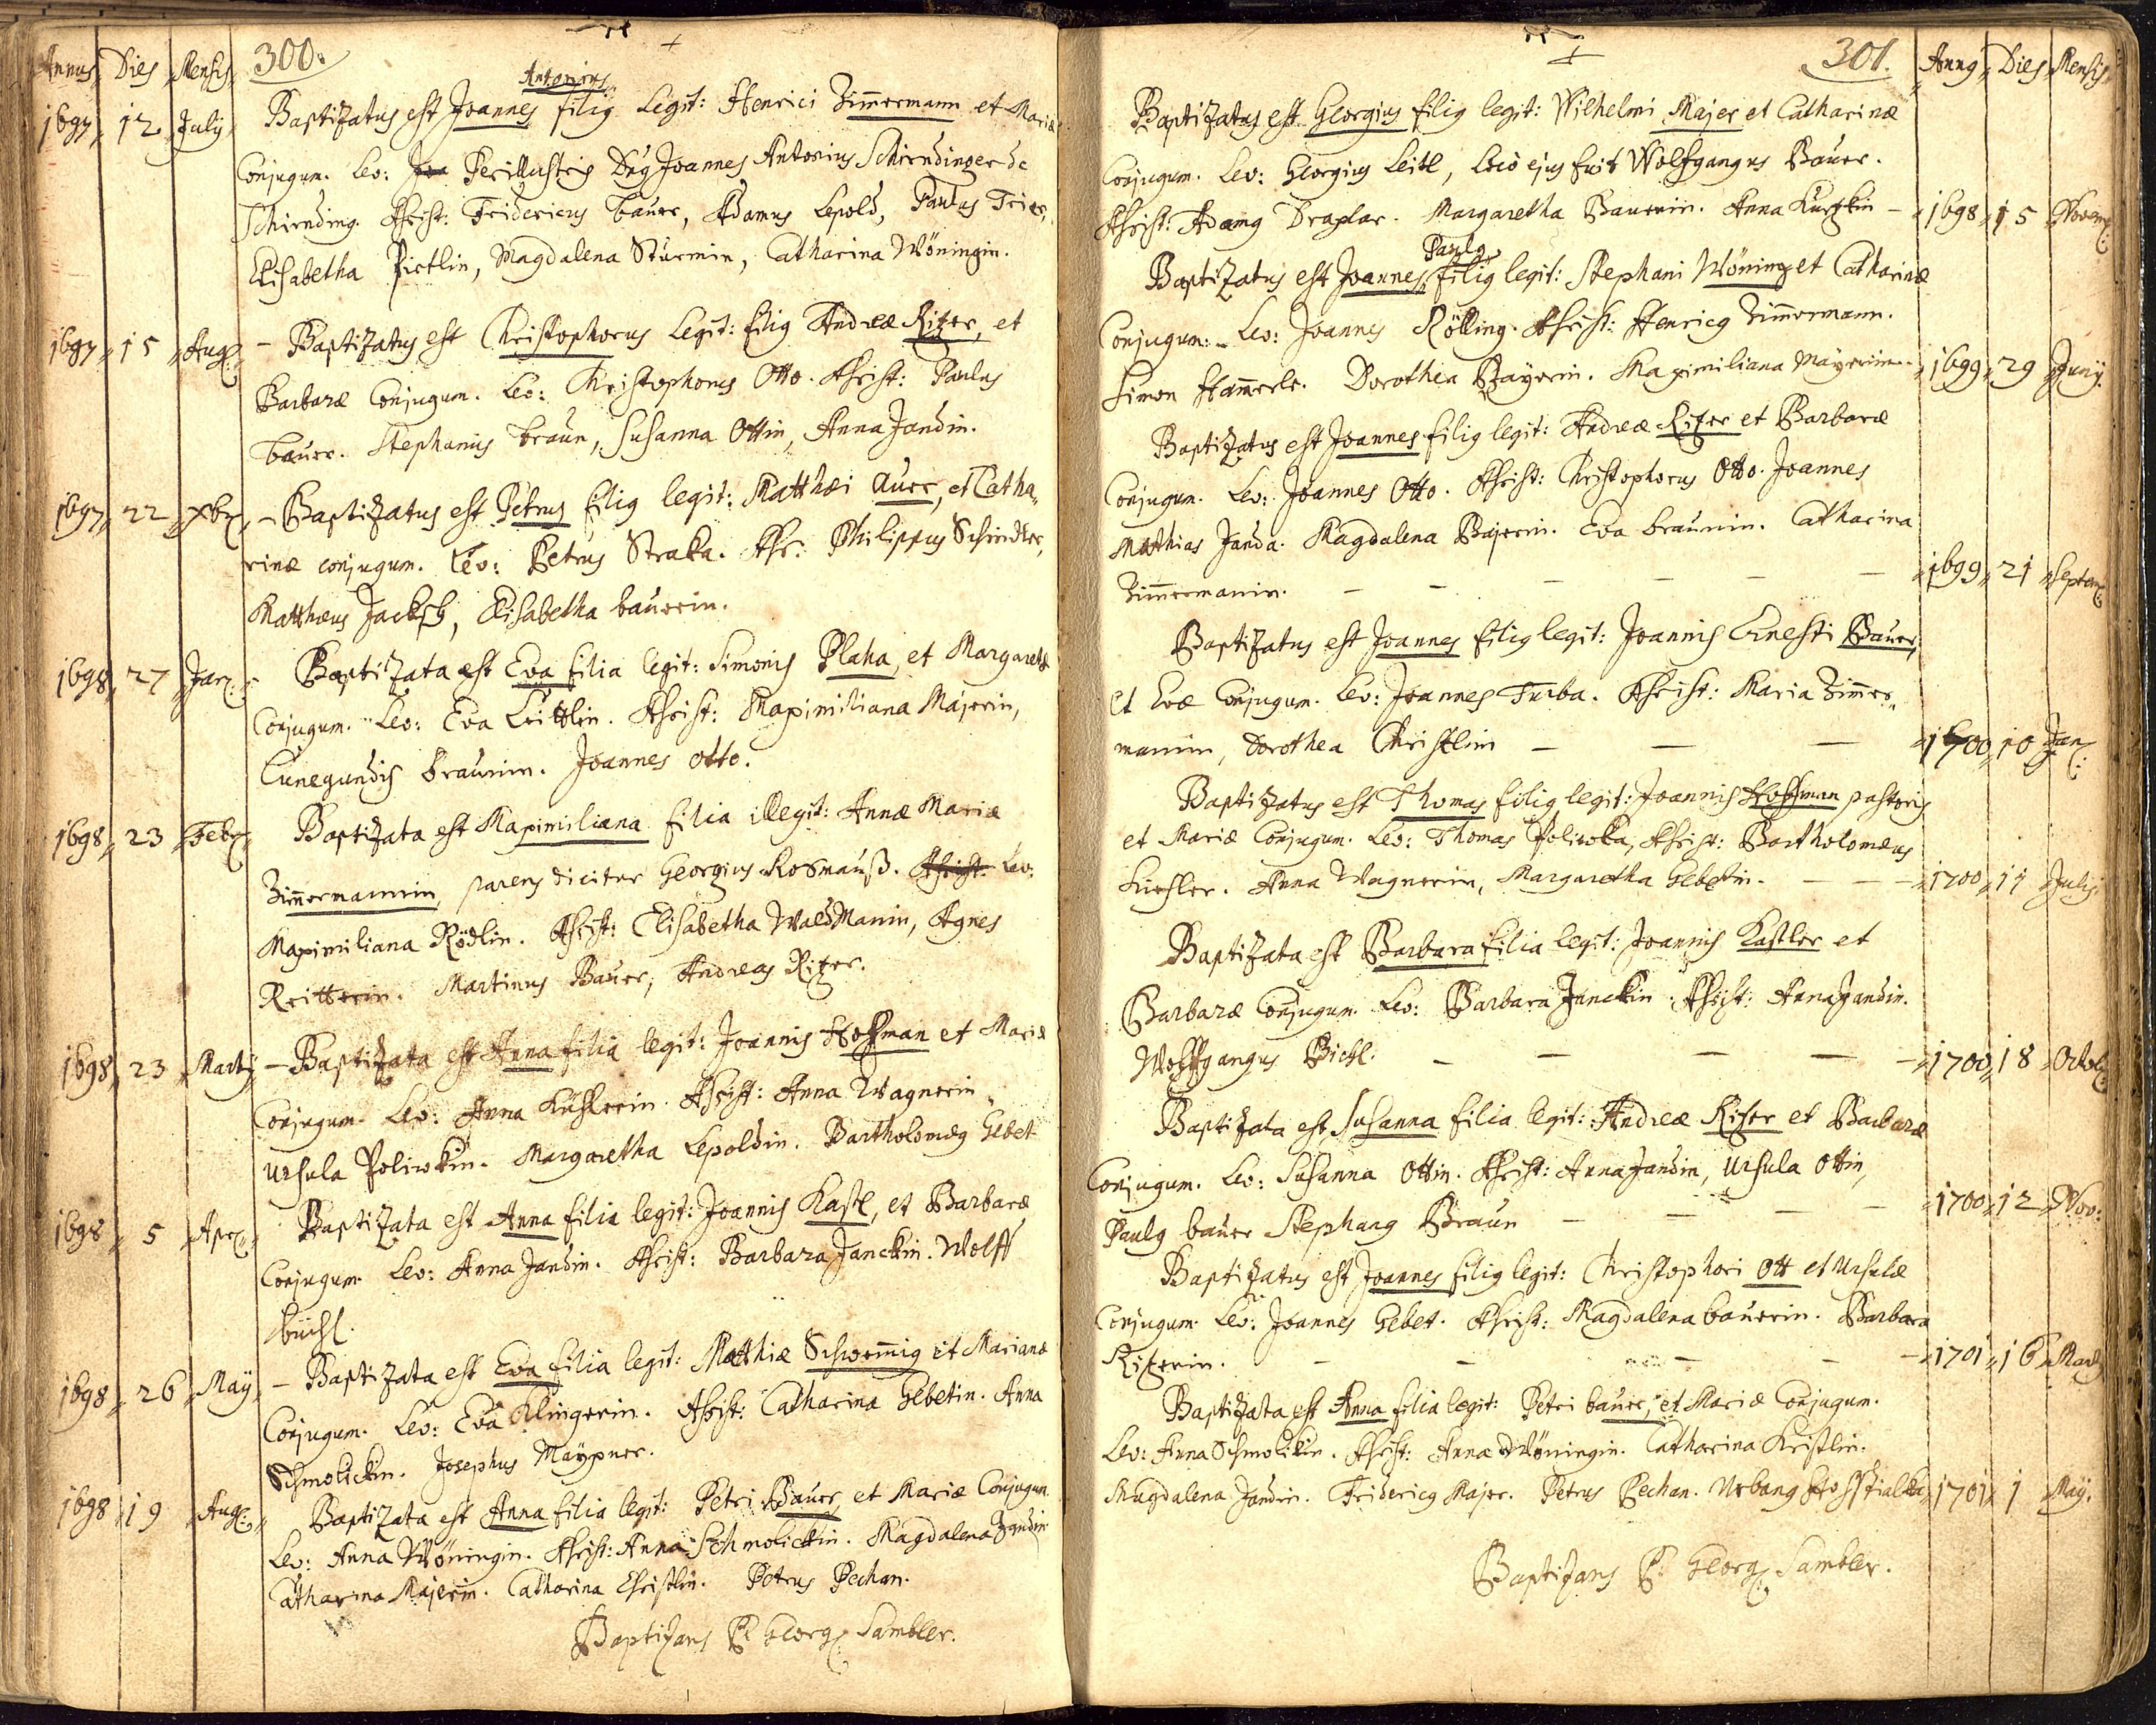 Annus Dies Mensis 300.
Antonius
1697 12 July Baptizatus est Joannes filig Legit: Henrici Zimmermann et Mariæ
Conjugum. Lev: Perillustris Dng Joannes Antonius Schirndinger de
Schirnding. Assist: Fridericus bauer, Adamus Lepold, Paulus Trier,
Elisabetha Pirtlin, Magdalena Sturmin, Catharina Wöningin.
1697 15 Aug: – Baptizatus est Christophorus Legit: filig Andreæ Ritzer, et
Barbaræ Conjugum. Lev: Christophorus Otto. Assist: Paulus
bauer. Stephanus braun, Susanna Ottin, Anna Jandin.
1697 22 xbr – Baptizatus est Petrus filig legit: Matthæi Auer, et Catha
rinæ conjugum. Lev: Petrus Straka. Ass: Philippus Schindler,
Matthæus Jacksch, Elisabetha bauerin.
1698 27 Jan: – Baptizata est Eva filia legit: Simonis Plaha, et Margarethæ
Conjugum. Lev: Eva Leittlin. Assist: Maximiliana Majerin,
Cunegundis braunin. Joannes otto.
1698 23 Febr Baptizata est Maximiliana filia illegit: Annæ Mariæ
Zimmermannin, parens dicitur Georgius Rosmauß. Assist: Lev:
Maximiliana Rödlin. Assist: Elisabetha WaldManin, Agnes
Reitterin. Martinus Bauer, Andreas Ritzer.
1698 23 Martij – Baptizata est Anna filia legit: Joannis Hoffman et Mariæ
Conjugum. Lev: Anna Küslerin. Assist: Anna Wagnerin
Ursula Poliwkin. Margaretha Lepoldin. Bartholomæg Gebet
1698 5 Apr: Baptizata est Anna filia legit: Joannis Kastl, et Barbaræ
Conjugum. Lev: Anna Jandin. Assist: Barbara Janckin. Wolff
büchl.
1698 26 May – Baptizata est Eva filia legit: Matthiæ Schwemmig et Marianæ
Conjugum. Lev: Eva Klingerin. Assist: Catharina Gebetin. Anna
Schmolickin. Josephus Maÿxner.
1698 19 Aug: Baptizata est Anna filia legit: Petri Bauer, et Mariæ Conjugum
Lev: Anna Wöningin. Assist: Anna Schmolickin. Magdalena Jandin
Catharina Majerin. Catharina Christlin. Petrus Pechan.
Baptizans P. Georg: Sambler.
301. Anng Dies Mensis
Baptizatus est Georgius filig legit: Wilhelmi Majer et Catharinæ
Conjugum. Lev: Georgius Leitl, loco ejus fuit Wolfgangus Bauer.
Assist: Adamg Draxlar. Margaretha Bauerin. Anna Kurzkin – 1698 15 Novem:
Paulg
Baptizatus est Joannes filig legit: Stephani Wöning et Catharinæ
Conjugum. Lev: Joannes Rölling. Assist: Henricg Zimmermann.
Simon Hammerle. Dorothea Bayerin. Maximiliana Mayerin. 1699 29 Junij
Baptizatus est Joannes filig legit: Andreæ Ritzer et Barbaræ
Conjugum. Lev: Joannes Otto. Assist: Christophorus Otto. Joannes
Mathias Janda. Magdalena Bajerin. Eva braunin. Catharina
Zimmermanin. – – – – – 1699 21 Septem:
Baptizatus est Joannes filig legit: Joannis Ernesti Bauer,
et Evæ Conjugum. Lev: Joannes Turba. Assist: Maria Zimmer
manin, Dorothea Christlin – – – 1700 10 Jan:
Baptizatus est Thomas filig legit: Joannis Hoffman pastoris
et Mariæ Conjugum. Lev: Thomas Poliwka, Assist: Bartholomæus
Kiesler. Anna Wagnerin, Margaretha Gebetin. – – – 1700 11 Julij
Baptizata est Barbara filia legit: Joannis Kastler et
Barbaræ Conjugum. Lev: Barbara Janckin. Assist: Anna Jandin.
Wolffgangus Bichl. – – – – 1700 18 Octob:
Baptizata est Susanna filia legit: Andreæ Ritzer et Barbaræ
Conjugum. Lev: Susanna Ottin. Assist: Anna Jandin, Ursula Ottin,
Paulg bauer Stephang Braun – – – – 1700 12 Nov:
Baptizatus est Joannes filig legit: Christophori Ott et Ursulæ
Conjugum. Lev: Joannes Gebet. Assist: Magdalena bauerin. Barbara
Ritzerin. – – – – – 1701 16 Martij
Baptizata est Anna filia legit: Petri bauer, et Mariæ Conjugum.
Lev: Anna Schmolickin. Assist: Anna Wöningin. Catharina Kristlin.
Magdalena Jandin. Fridericg Majer. Petrus Pechan. Urbang 1701 1 May.
Baptizans P. Georg: Sambler.